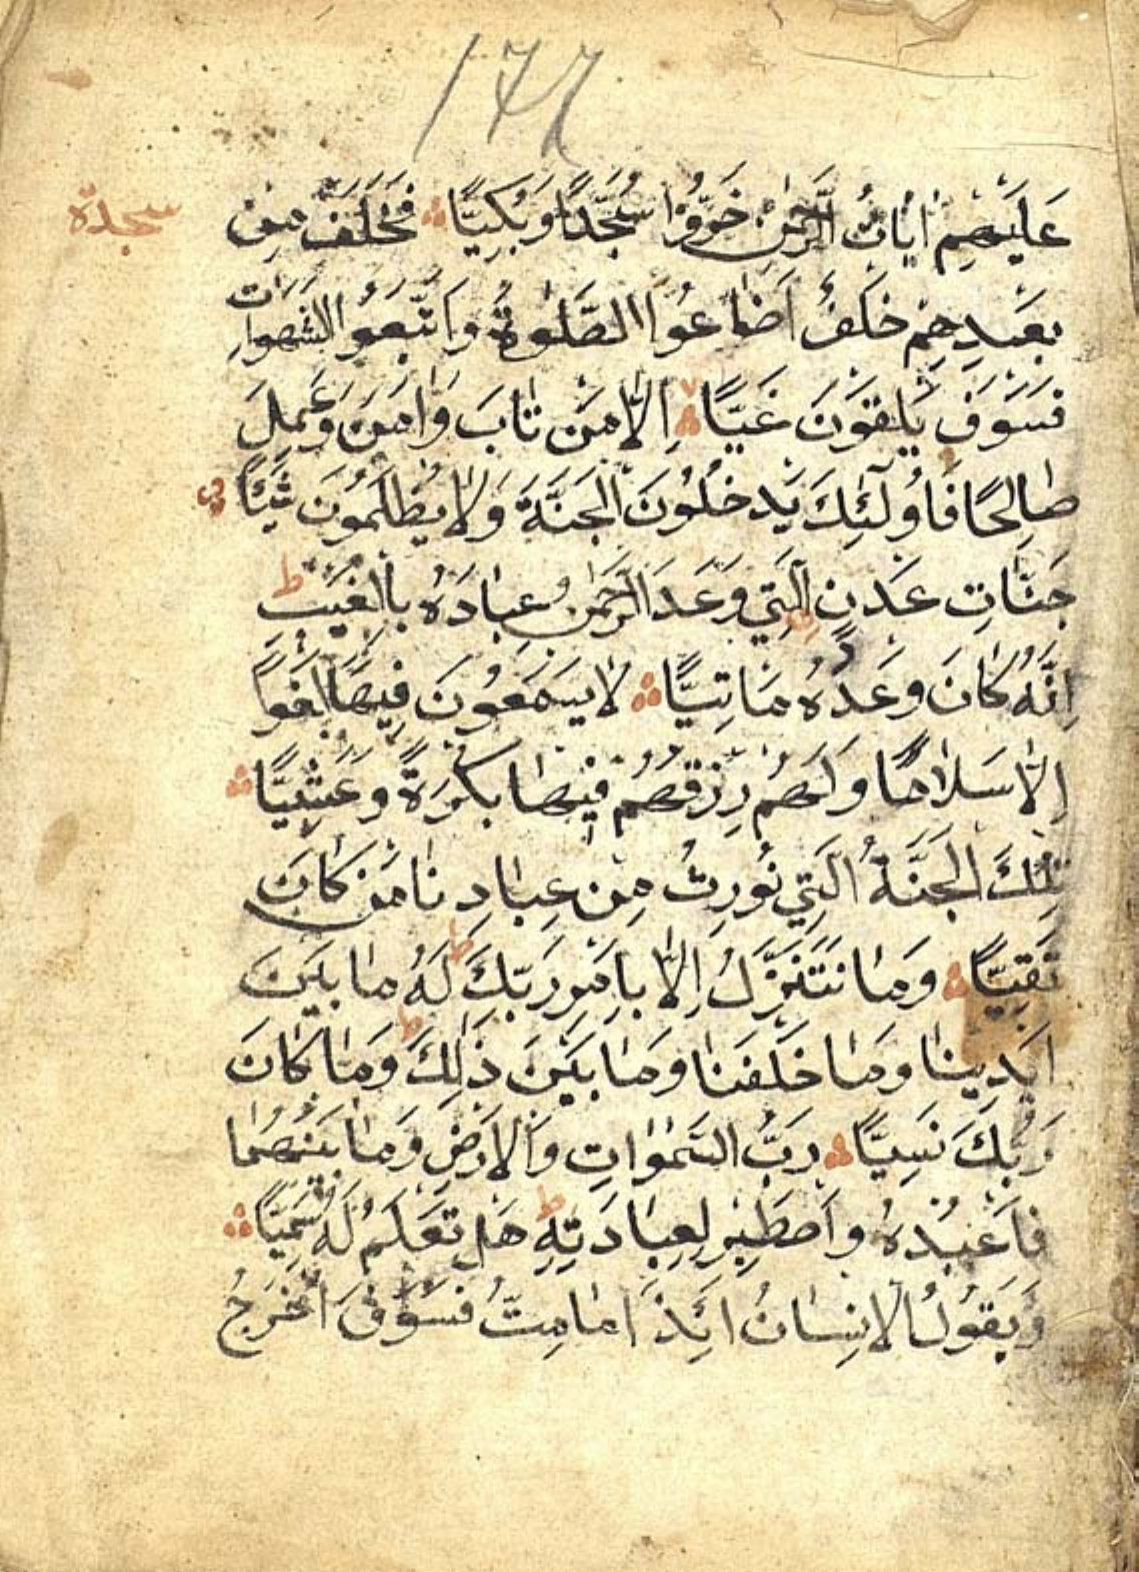 ١٧٧
عَلَيْهِمْ اٰيَاتُ الرَّحْمٰنِ خَرُّوْا سُجَّدًا وَبُكِيًّا ∴ فَخَلَفَ مِنْ
سجدة
بَعْدِهِمْ خَلْفٌ اَضَاعُوا الصَّلٰوةَ وَاتَّبَعُوا الشَّهَوَاتِ
فَسَوْفَ يَلْقَوْنَ غَيًّا ∴ اِلَّا مَنْ تَابَ وَاٰمَنَ وَعَمِلَ
صَالِحًا فَاُولٰٓئِكَ يَدْخُلُوْنَ الْجَنَّةَ وَلَا يُظْلَمُوْنَ شَيْئًا
جَنَّاتِ عَدْنٍ الَّتِي وَعَدَ الرَّحْمٰنُ عِبَادَهُ بِالْغَيْبِ ط
اِنَّهُ كَانَ وَعْدُهُ مَاْتِيًّا ∴ لَا يَسْمَعُوْنَ فِيْهَا لَغْوًا
اِلَّا سَلَامًا وَلَهُمْ رِزْقُهُمْ فِيْهَا بُكْرَةً وَعَشِيًّا ∴
تِلْكَ الْجَنَّةُ الَّتِي نُوْرِثُ مِنْ عِبَادِنَا مَنْ كَانَ
تَقِيًّا ∴ وَمَا نَتَنَزَّلُ اِلَّا بِاَمْرِ رَبِّكَ ط لَهُ مَا بَيْنَ
اَيْدِيْنَا وَمَا خَلْفَنَا وَمَا بَيْنَ ذٰلِكَ ط وَمَا كَانَ
رَبُّكَ نَسِيًّا ∴ رَبُّ السَّمٰوَاتِ وَالْاَرْضِ وَمَا بَيْنَهُمَا
فَاعْبُدْهُ وَاصْطَبِرْ لِعِبَادَتِهِ ط هَلْ تَعْلَمُ لَهُ سَمِيًّا ∴
وَيَقُوْلُ الْاِنْسَانُ اَئِذَا مَا مِتُّ فَسَوْفَ اُخْرَجُ